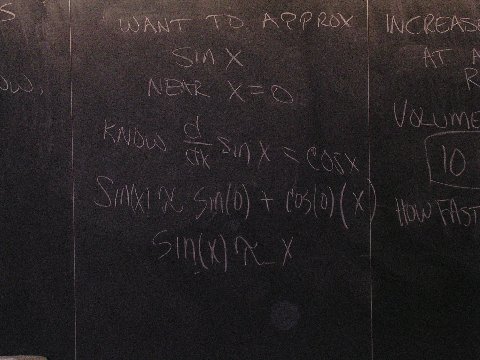 S
OW.
WANT TO APPROX
SIN X
NEAR X=0
KNOW d/dx sin x = cosx
Sin(x) ≈ sin(0) + cos(0)(x)
Sin(x) ≈ x
INCREASE
AT A
R
VOLUME
10
HOW FAST